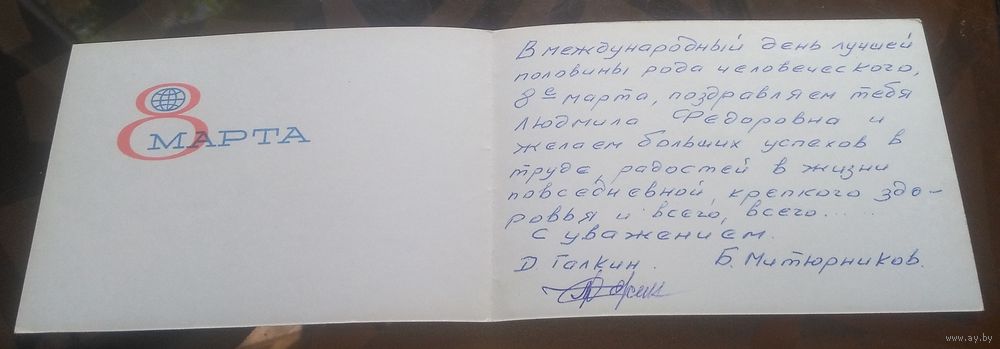 8
МАРТА
В международный день лучшей
половины рода человеческого,
8е марта, поздравляем тебя
Людмила Федоровна и
желаем больших успехов в
труде, радостей в жизни
повседневной, крепкого здо-
ровья и всего, всего.....
С уважением.
Д. Галкин. Б. Митюрников.
www.ay.by